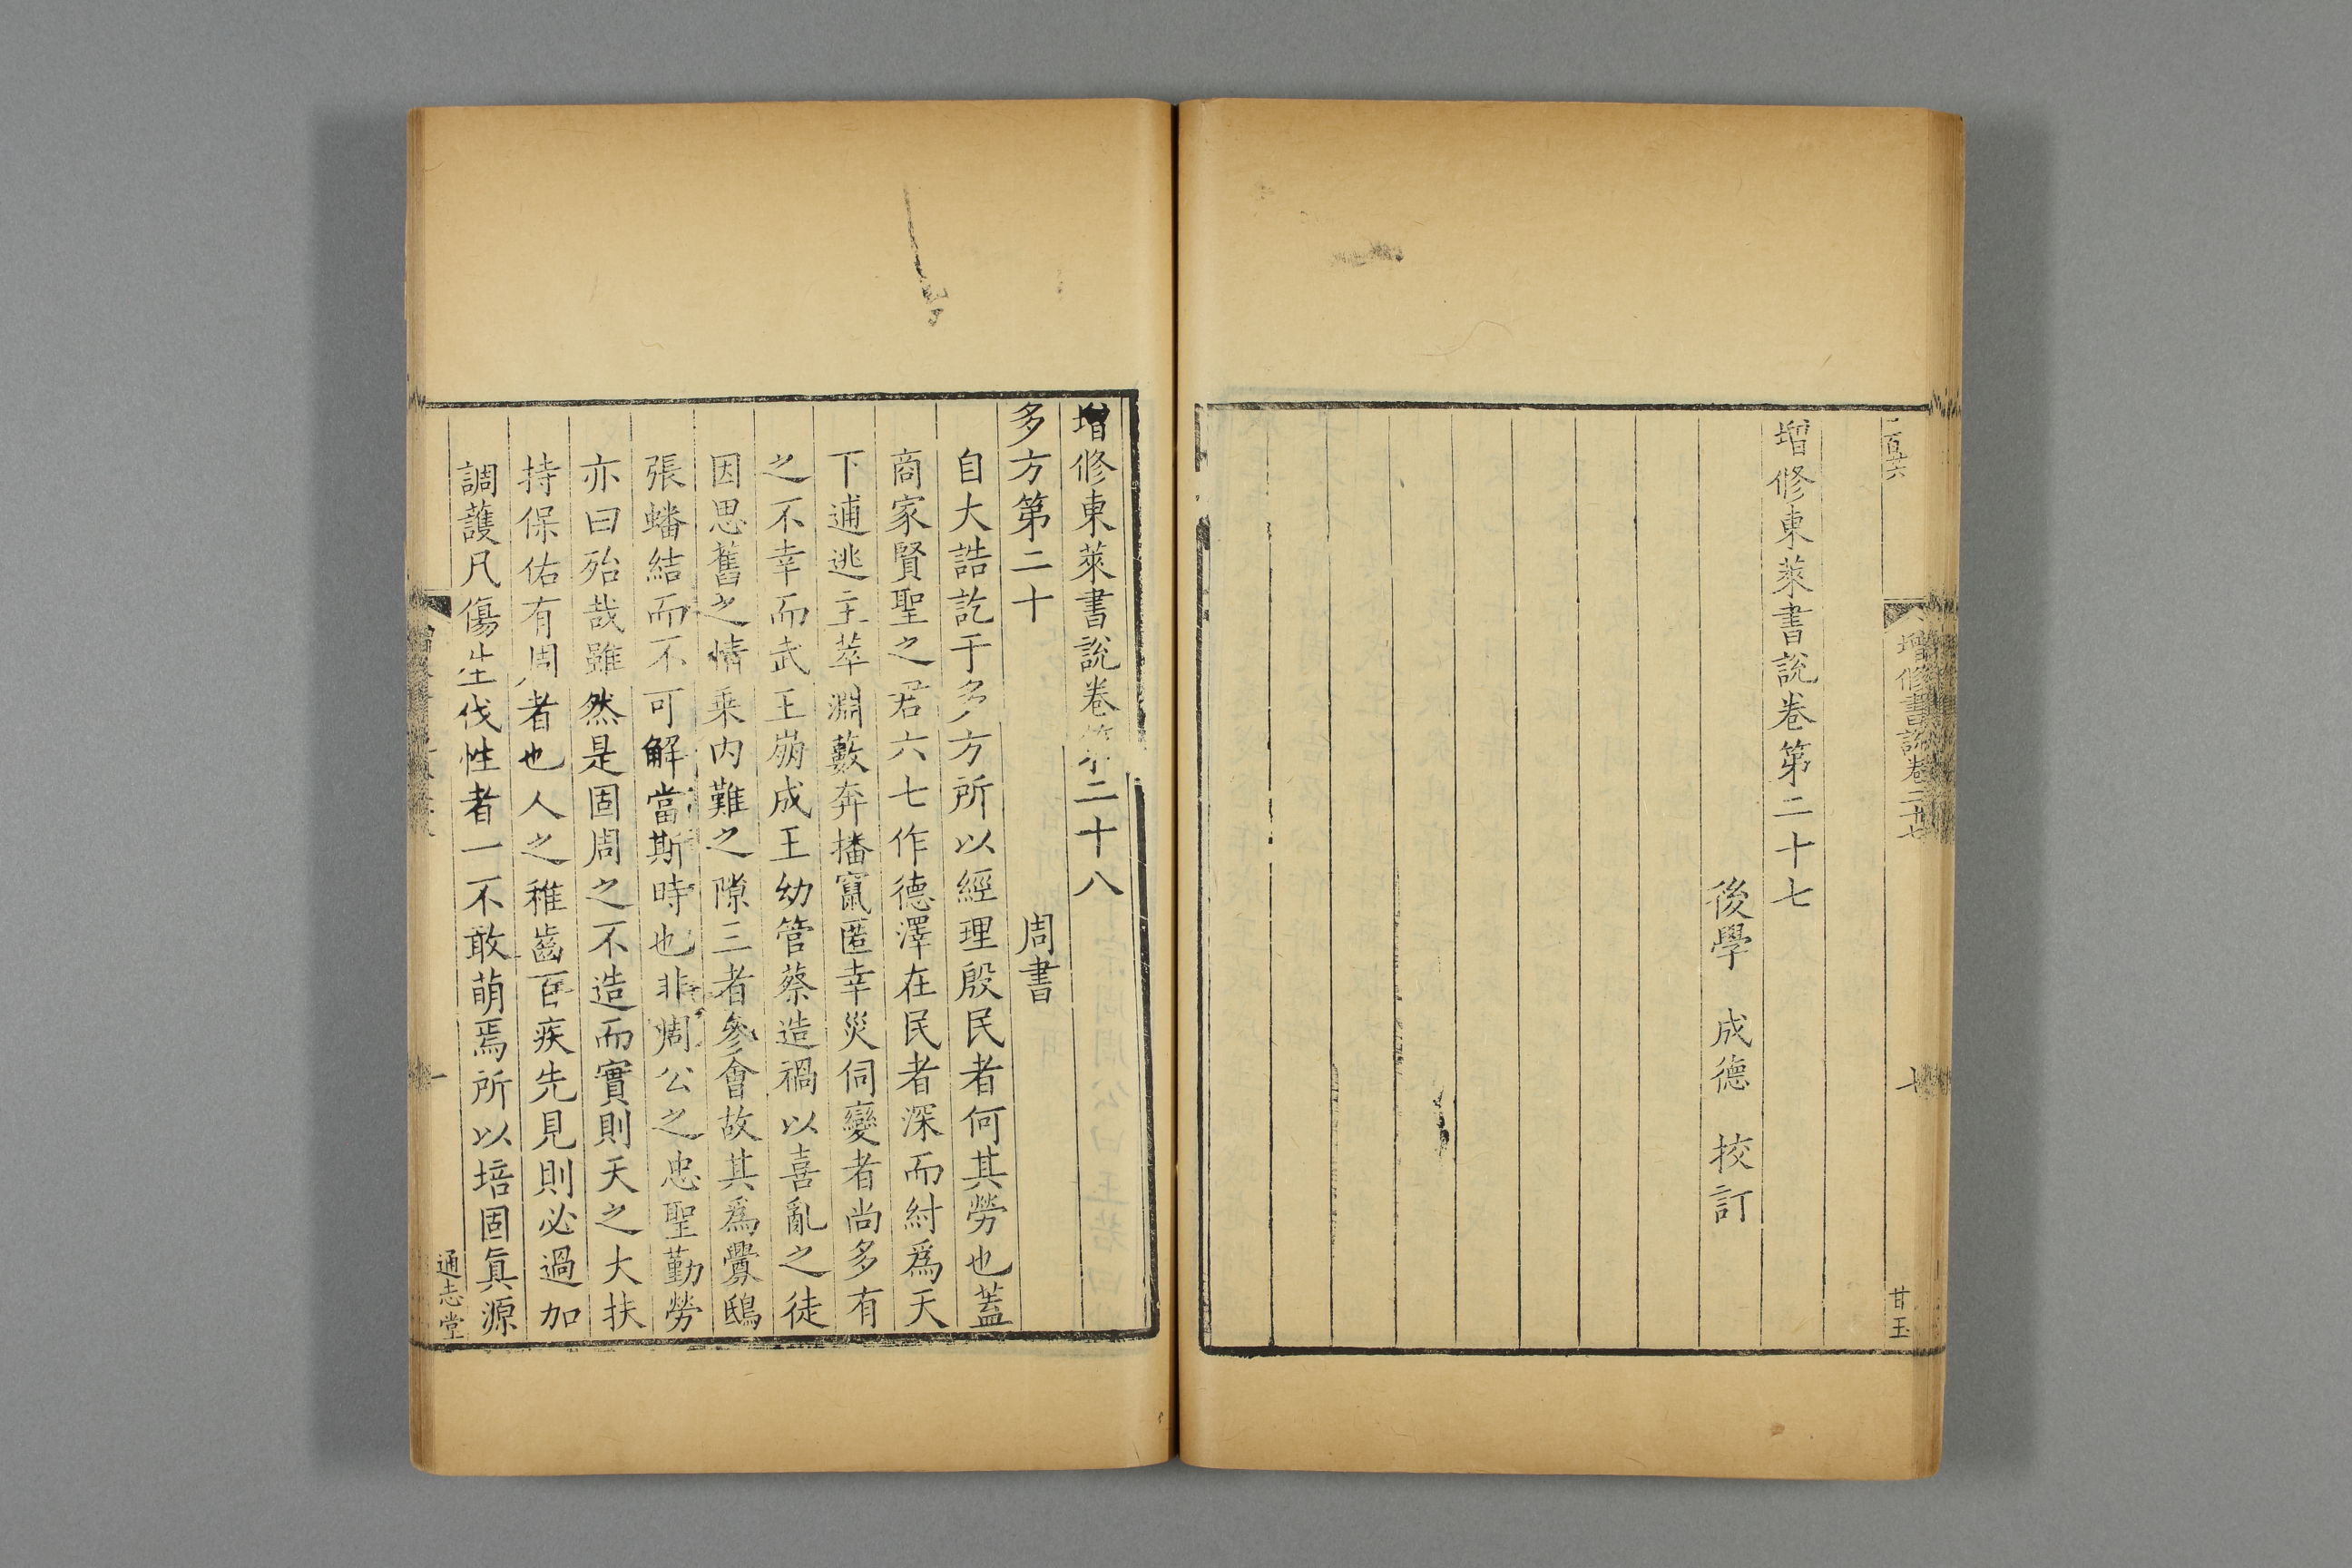 二百六
增修書說卷二十七
七
甘玉
增修東萊書說卷第二十七
後學 成德 挍訂
增修東萊書說卷第二十八
多方第二十 周書
自大誥訖于多方所以經理殷民者何其勞也蓋
商家賢聖之君六七作德澤在民者深而紂爲天
下逋逃主萃淵藪奔播竄匿幸災伺變者尚多有
之不幸而武王崩成王幼管蔡造禍以喜亂之徒
因思舊之情乘內難之隙三者參會故其爲釁鴟
張蟠結而不可解當斯時也非周公之忠聖勤勞
亦曰殆哉雖然是固周之不造而實則天之大扶
持保佑有周者也人之稚齒百疾先見則必過加
調護凡傷生伐性者一不敢萌焉所以培固眞源
一
通志堂